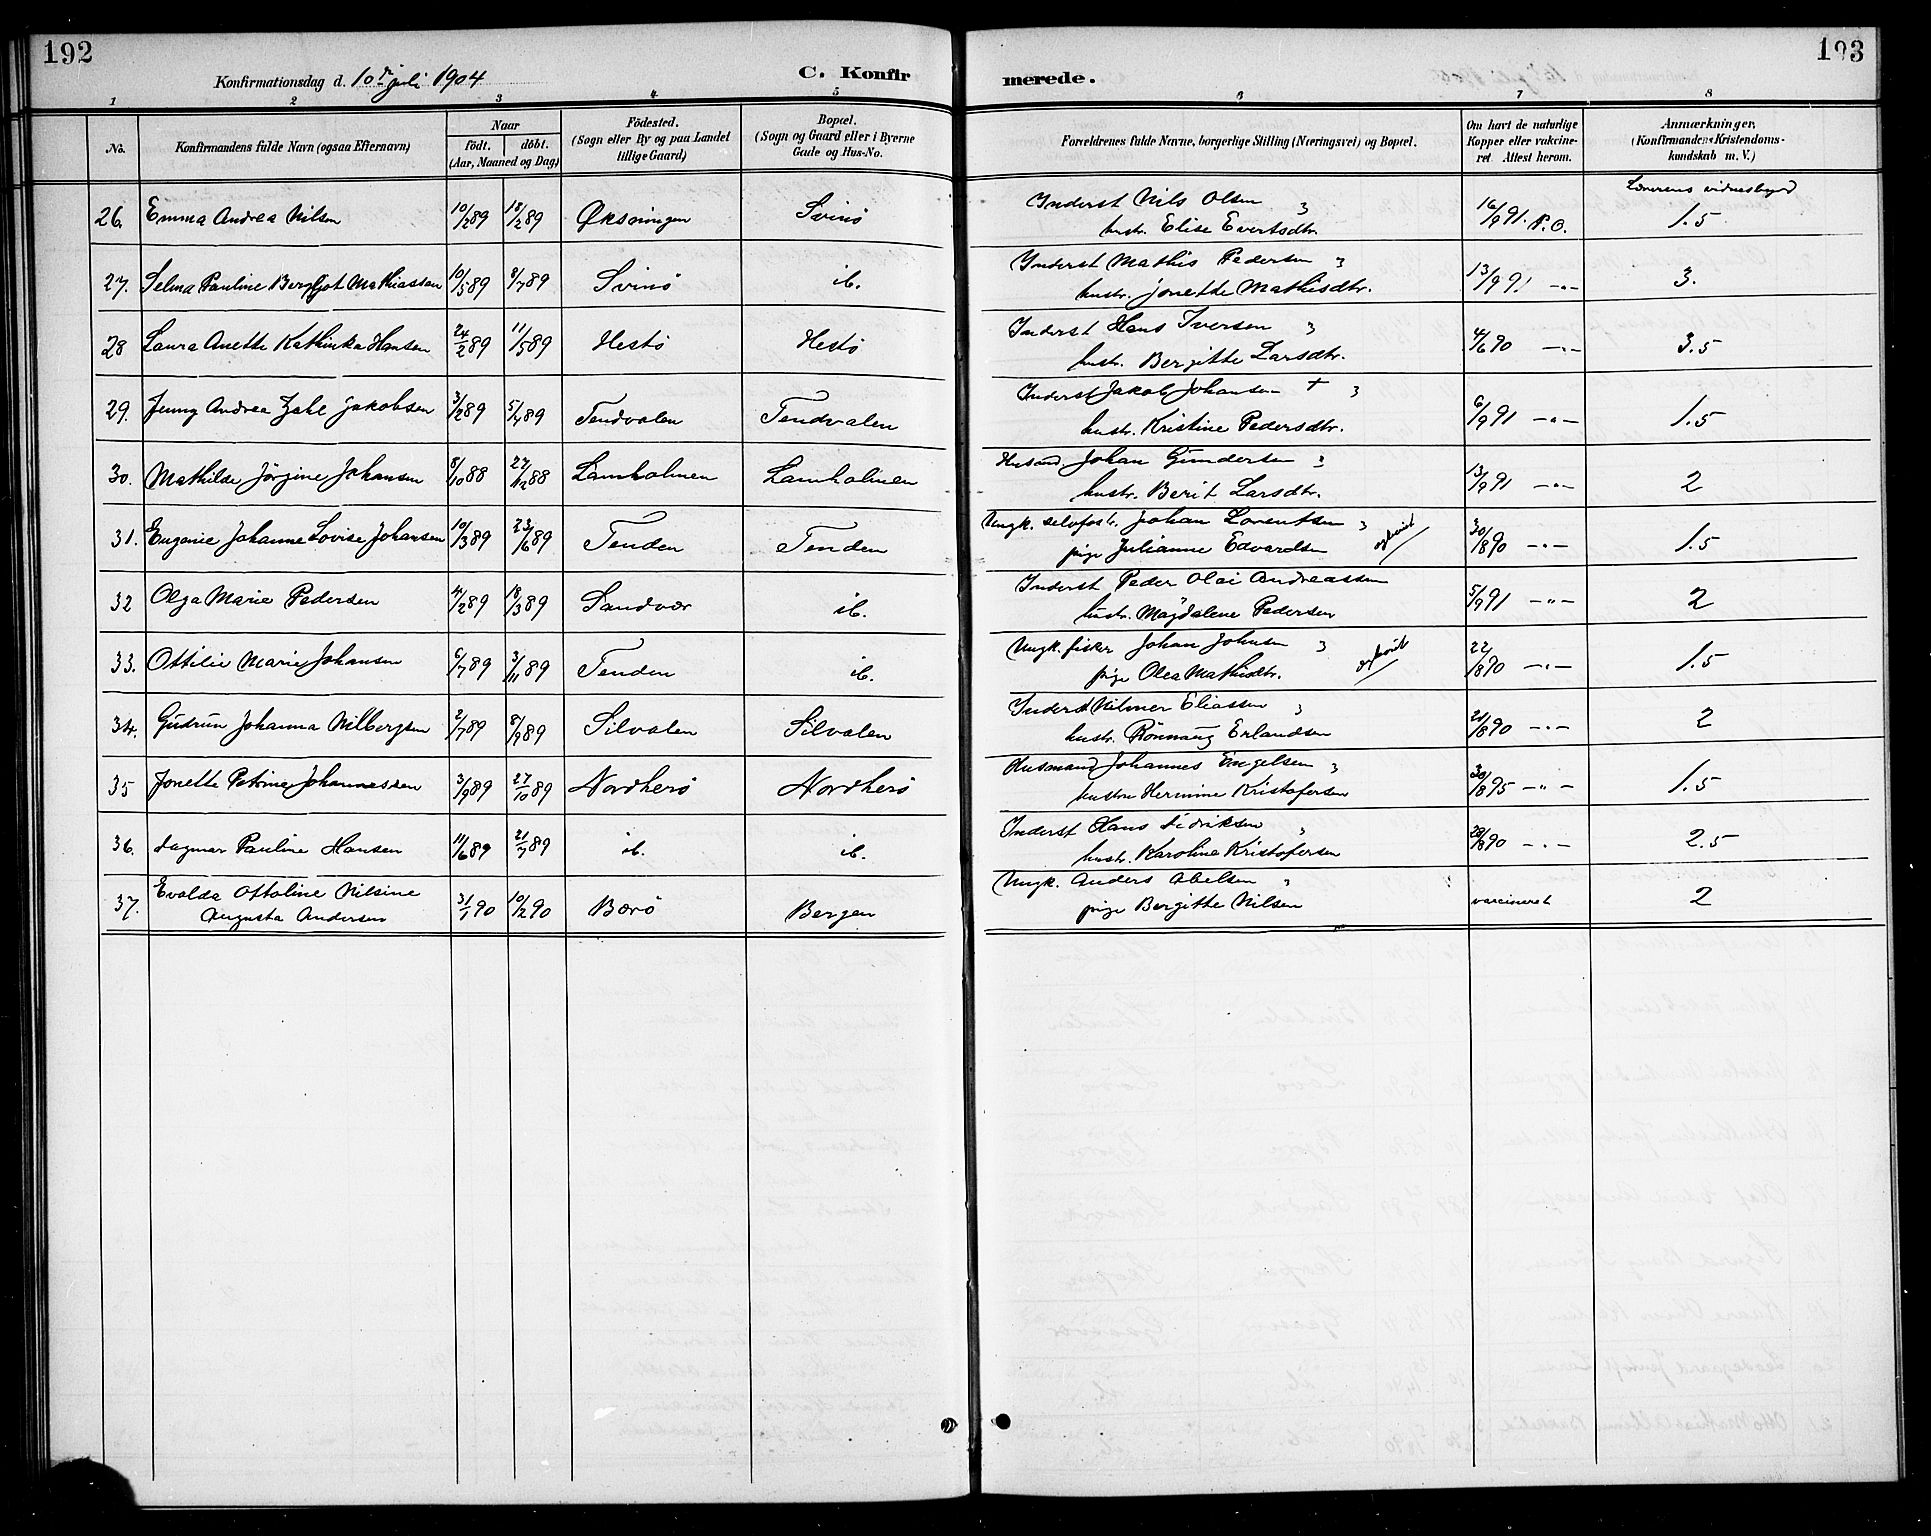 192
193
Konfirmationsdag d. 10de juli 1904
C. Konfir
merede.
1 2 3 4 5 6 7 8
No.
Konfirmandens fulde Navn (ogsaa Efternavn)
Naar
födt. döbt.
(Aar, Maaned og Dag)
Födested.
(Sogn eller By og paa Landet
tillige Gaard)
Bopæl.
(Sogn og Gaard eller i Byerne
Gade og Hus-No.
Forældrenes fulde Navne, borgerlige Stilling (Næringsvei) og Bopæl.
Om havt de naturlige
Kopper eller vakcine-
ret Attest herom.
Anmærkninger,
(Konfirmandens Kristendoms-
kundskab m. V.)
Lærerens vidnesbyrd
26. Emma Andrea Nilsen 10/2 89 18/2 89 Øksningen Svinö Inderst Nils Olsen 16/9 91. P.O. 1.5
hustr. Elise Evertsdtr.
27. Selma Pauline Bergljot Mathiassen 10/5 89 8/7 89 Svinö ib. Inderst Mathis Pedersen 13/9 91 -"- 3.
hustr. Jonette Mathisdtr.
28 Laura Anette Kathinka Hansen 24/2 89 11/5 89 Hestö Hestö Inderst Hans Iversen 4/6 90 -"- 3.5
hustr. Bergitte Larsdtr.
29. Jenny Andrea Zahl Jakobsen 3/2 89 5/4 89 Tendvalen Tendvalen Inderst Jakob Johansen + 6/9 91 -"- 1.5
hustr. Kristine Pedersdtr.
30. Mathilde Jörgine Johansen 8/10 88 27/12 88 Lamholmen Lamholmen Husmd. Johan Gundersen 13/9 91 -"- 2
hustr. Berit Larsdtr.
31. Eugenie Johanne Lovise Johansen 10/3 89 23/6 89 Tenden Tenden Ungk. selvfostr. Johan Lorentsen 30/8 90 -"- 1.5
pige Julianne Edvardsen
32 Olga Marie Pedersen 4/2 89 18/3 89 Sandvær ib. Inderst Peder Olai Andreassen 5/9 91 -"- 2
hustr. Magdalene Pedersen
33. Ottilie Marie Johansen 6/7 89 3/11 89 Tenden ib. Ungk. fisker Johan Johnsen 22/8 90 -"- 1.5
pige Olea Mathisdtr.
34. Gudrun Johanna Hilbergsen 2/7 89 8/9 89 Silvalen Silvalen Inderst Hilmer Eliassen 21/8 90 -"- 2
hustr. Rönnaug Erlandsen
35 Jonette Petrine Johannessen 3/9 89 27/10 89 Nordherö Nordherö Husmand Johannes Engelsen 30/8 95 -"- 1.5
hustru Hermine Kristofersen
36. Dagmar Pauline Hansen 11/6 89 21/7 89 ib. ib. Inderst Hans Didriksen 28/8 90 -"- 2.5
hustr. Karoline Kristofersen
37. Evalda Ottoline Nilsine 31/1 90 10/2 90 Bærö Bergen Ungk. Anders Abelsen vaccineret 2
Augusta Andersen pige Bergitte Nilsen